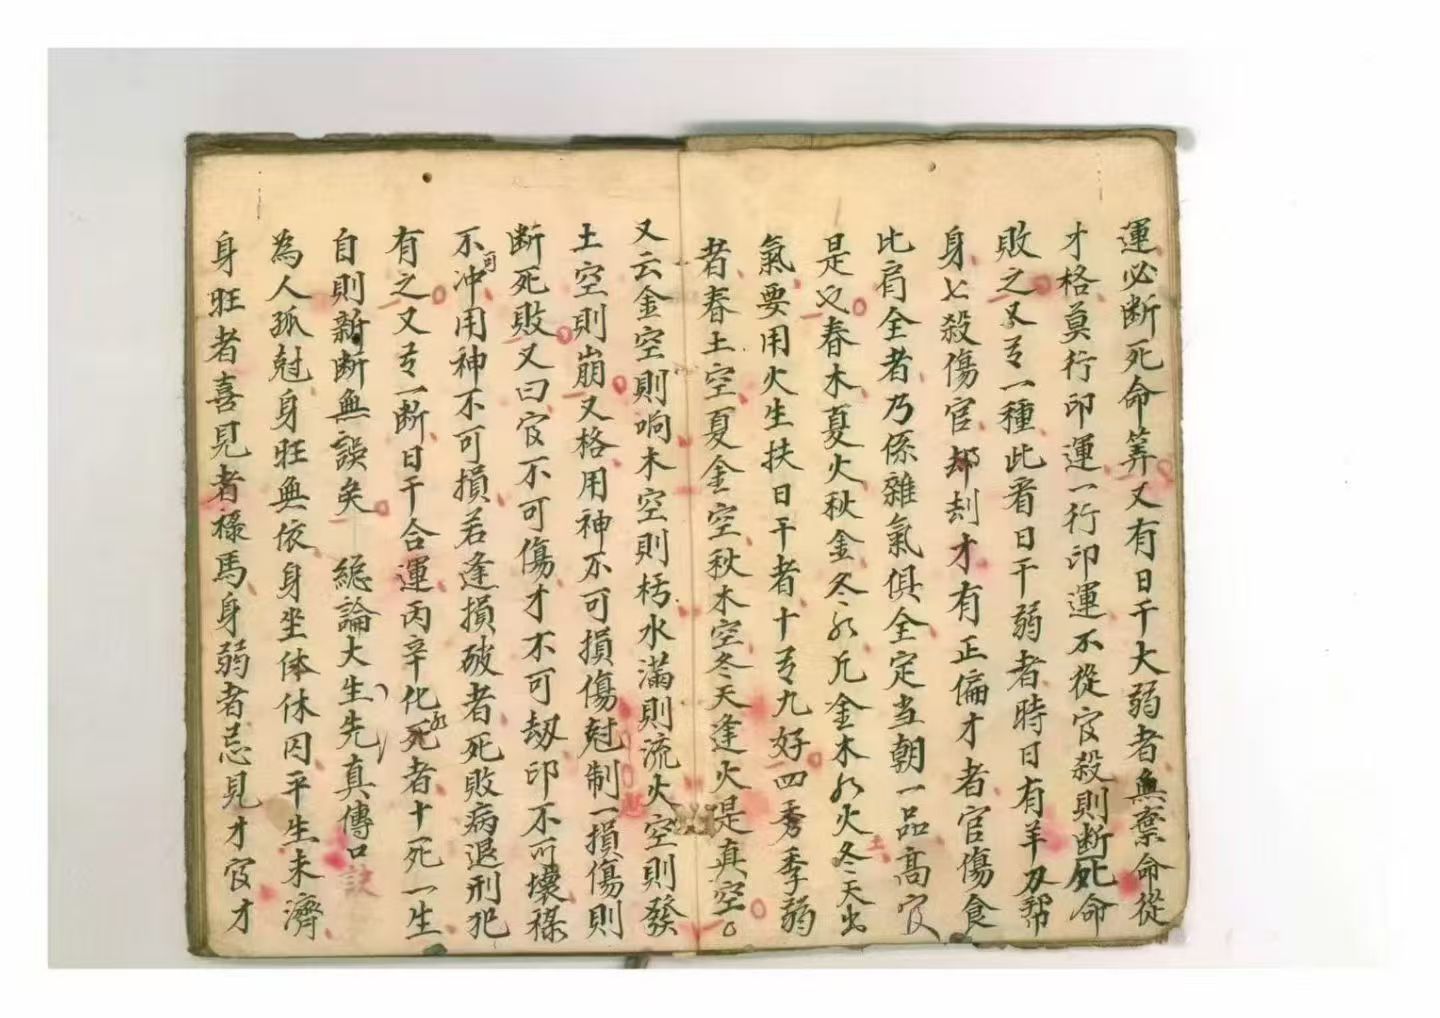 運必断死命筭又有日干大弱者無棄命從
才格莫行印運一行印運不從官殺則断死命
敗之又有一種此看日干弱者時日有羊刃帮
身七殺傷官却刦才有正偏才者官傷食
比肩全者乃係雜氣俱全定当朝一品高官
是也春木夏火秋金冬水凢金木水火土冬天出
氣要用火生扶日干者十有九好四秀季弱
者春土空夏金空秋木空冬天逢火是真空
又云金空則响木空則朽水滿則流火空則發
土空則崩又格用神不可損傷尅制一損傷則
断死敗又曰官不可傷才不可劫印不可壞祿
不可冲用神不可損若逢損破者死敗病退刑犯
有之又有一断日干合運丙辛化水死者十死一生
自則新断無誤矣 總論大生先真傳口訣
為人孤尅身旺無依身坐体休囚平生未濟
身旺者喜見者祿馬身弱者忌見才官才